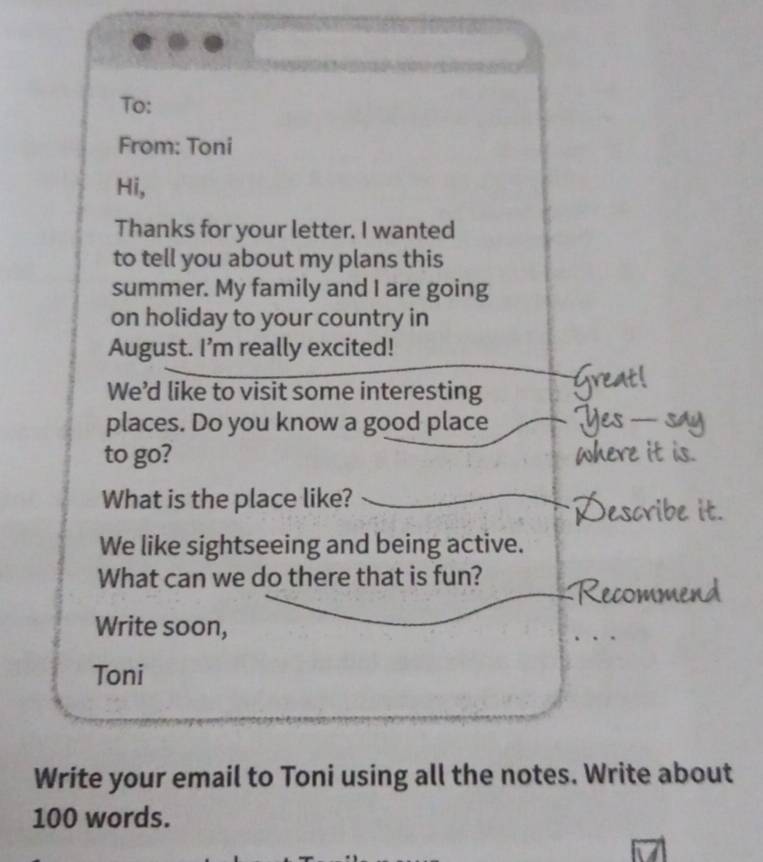 To:
From: Toni
Hi,
Thanks for your letter. I wanted
to tell you about my plans this
summer. My family and I are going
on holiday to your country in
August. I'm really excited!
Great!
We'd like to visit some interesting
places. Do you know a good place
Yes — say
to go?
where it is.
What is the place like?
Describe it.
We like sightseeing and being active.
What can we do there that is fun?
Recommend
Write soon,
. . .
Toni
Write your email to Toni using all the notes. Write about
100 words.